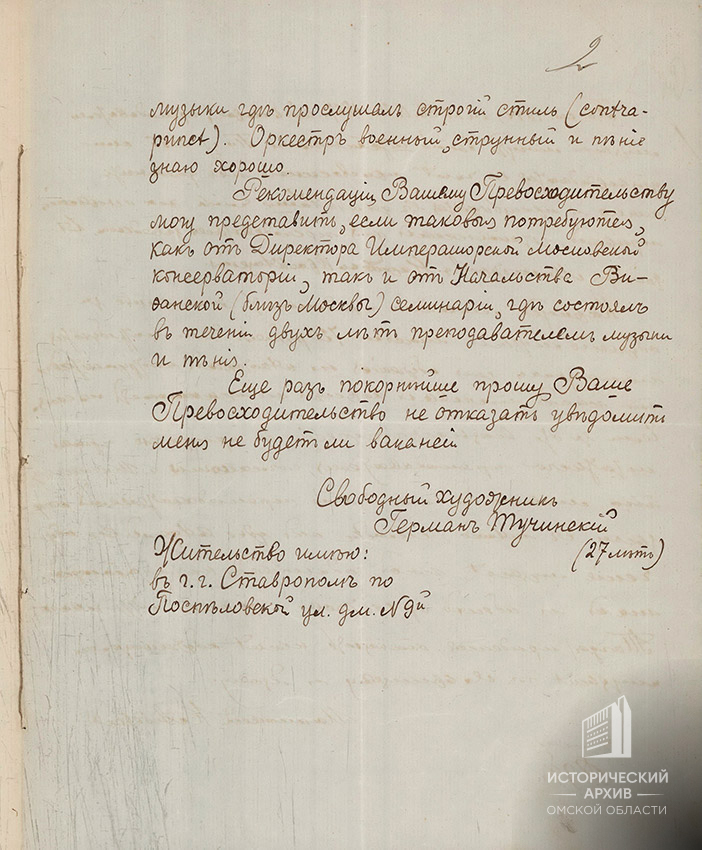 2
музыки гдѣ прослушалъ строгій стиль (contra-
punct). Оркестръ военный, струнный и пѣніе
знаю хорошо.
Рекомендаціи Вашему Превосходительству
могу представить, если таковыя потребуются,
какъ отъ Директора Императорской Московской
консерваторіи, такъ и отъ Начальства Ви-
ѳанской (близъ Москвы) семинаріи, гдѣ состоялъ
въ теченіи двухъ лѣтъ преподавателемъ музыки
и пѣнія.
Еще разъ покорнѣйше прошу Ваше
Превосходительство не отказать увѣдомить
меня не будетъ ли вакансій.
Свободный художникъ
Германъ Тучинскій
(27 лѣтъ)
Жительство имѣю:
въ г. г. Ставрополѣ по
Поспѣловской ул. дм. N 9й
ИСТОРИЧЕСКИЙ
АРХИВ
ОМСКОЙ ОБЛАСТИ